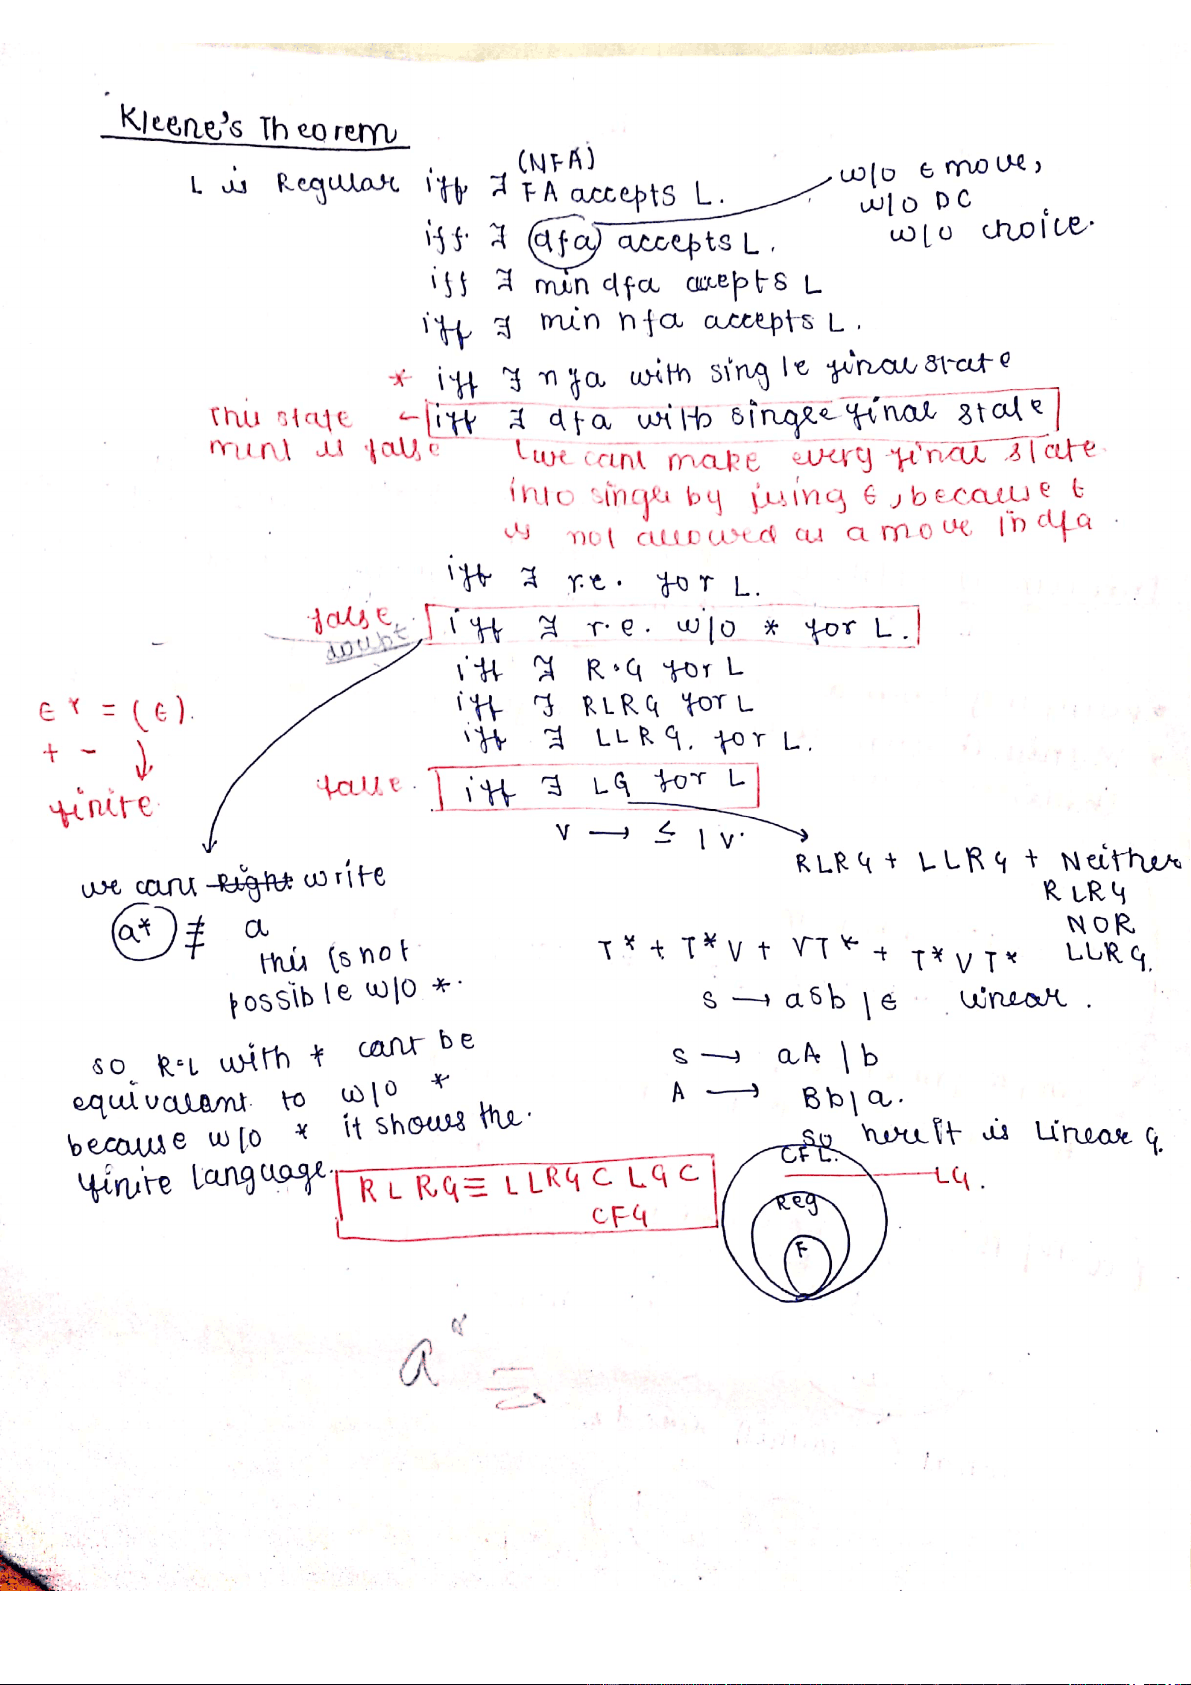 Kleene's Theorem
(NFA)
L is Regular iff ∃ FA accepts L.
w/o ϵ move,
w/o DC
w/o choice.
iff. ∃ dfa accepts L.
iff ∃ min dfa accepts L
iff ∃ min nfa accepts L.
* iff ∃ nfa with single final state
This state ← iff ∃ dfa with single final state
ment is false
we cant make every final state
into single by using ϵ, because ϵ
is not allowed as a move in dfa.
iff ∃ r.e. for L.
false. iff ∃ r.e. w/o * for L.
doubt
iff ∃ R.G for L
iff ∃ RLRG for L
iff ∃ LLRG. for L.
ϵ* = (ϵ).
+ - ↓
finite
false. iff ∃ LG for L
V → ≤ 1 V.
RLRG + LLRG + Neither
RLRG
NOR
LLRG.
we cant Right write
a* ≢ a
this is not
possible w/o *.
T* + T*V + VT* + T*VT*
S → aSb | ϵ linear.
S → aA | b
A → Bb | a.
so here it is Linear G.
so R.L with * cant be
equivalant to w/o *
because w/o * it shows the.
finite language.
RLRG ≡ LLRG ⊂ LG ⊂
CFG
CFL.
LG.
Reg
F
a*